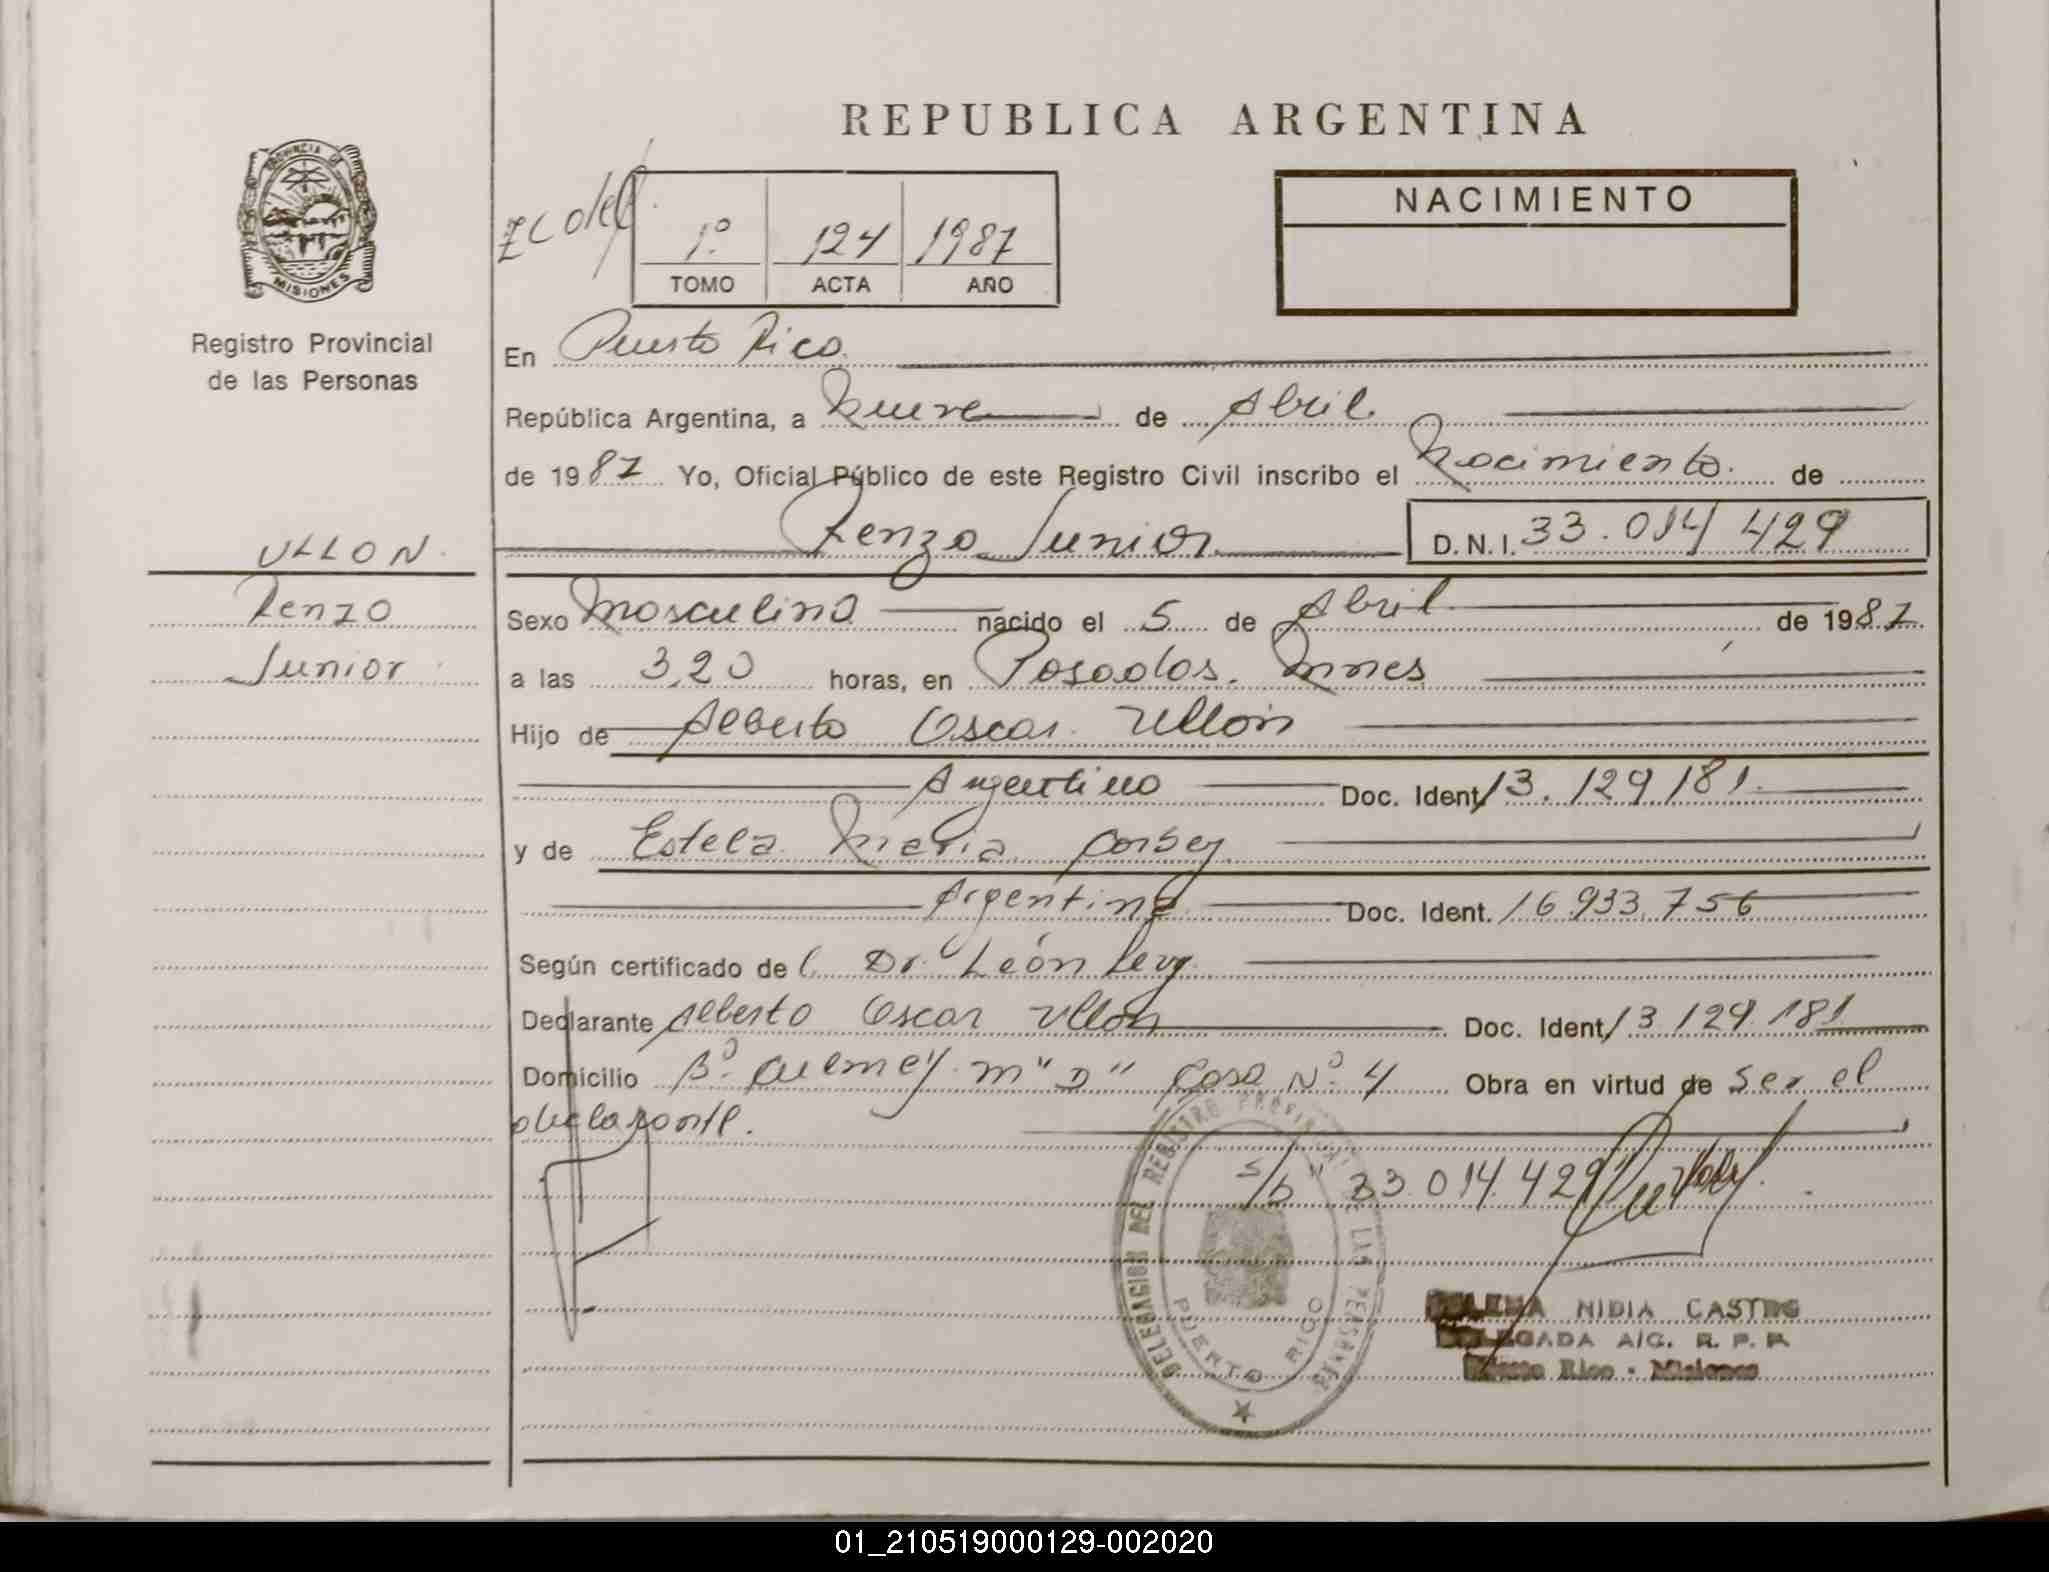 REPUBLICA ARGENTINA
PROVINCIA DE
MISIONES
Registro Provincial
de las Personas
NACIMIENTO
1º 124 1987
TOMO ACTA AÑO
En Puerto Rico.
República Argentina, a Nueve de Abril
de 1987 Yo, Oficial Público de este Registro Civil inscribo el Nacimiento. de
Renzo Junior D.N.I. 33.014 429
ULLON
Renzo
Junior
Sexo Masculino nacido el 5 de Abril de 1987
a las 3,20 horas, en Posadas. Mnes
Hijo de Alberto Oscar Ullon
Argentino Doc. Ident. 13.129 181
y de Estela Maria
Argentina Doc. Ident. 16.933.756
Según certificado de Dr. León Levy
Declarante Alberto Oscar Ullon Doc. Ident. 13 129 181
Domicilio Bº m "D" Casa Nº 4 Obra en virtud de ser el
declarante.
33.014.429
DELEGACION DEL REGISTRO PROVINCIAL DE LAS PERSONAS
PUERTO RICO
NIDIA CASTRO
DELEGADA A/C. R. P. P.
Puerto Rico - Misiones
01_210519000129-002020